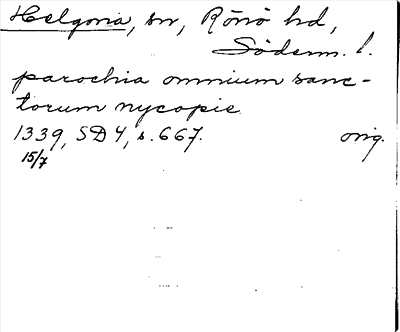 Helgona, sn, Rönö hd,
Söderm. l.
parochia omnium sanc-
torum nycopie
1339, SD 4, s. 667. orig.
15/7